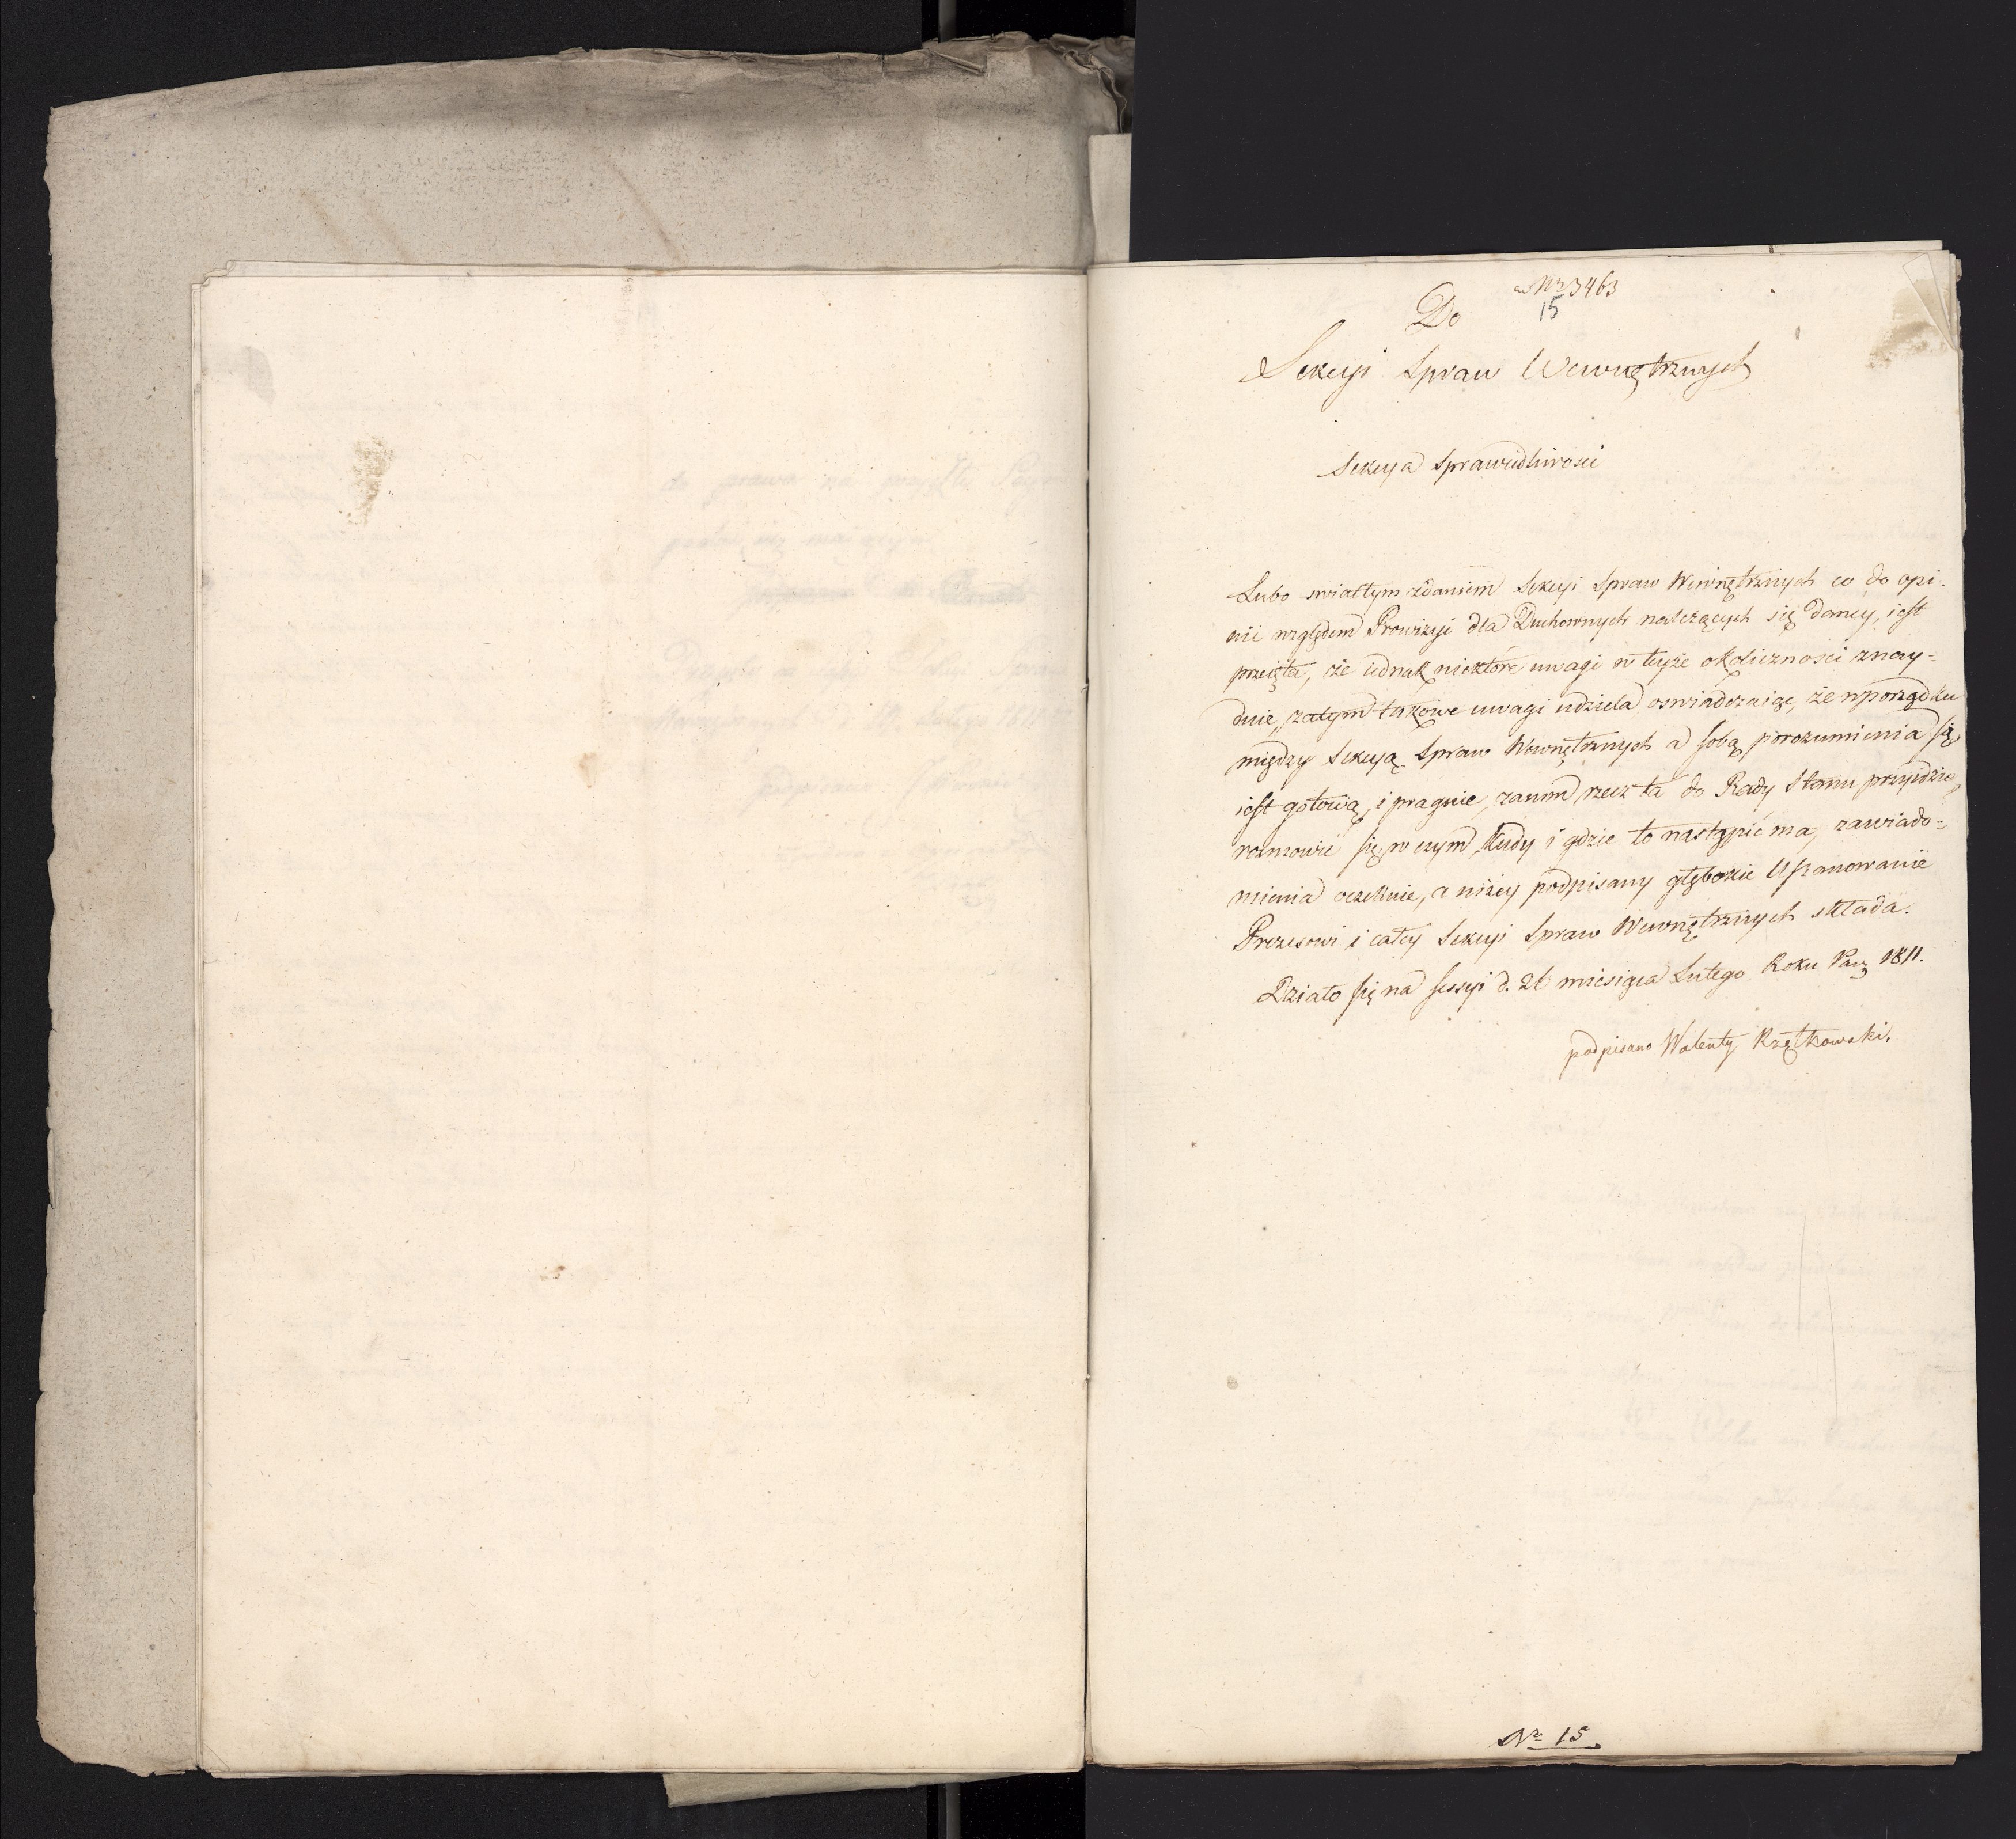 ad Nro 3463
15
Do
Sekcyi Spraw Wewnętrznych
Sekcya Sprawiedliwosci
Lubo swiatłym zdaniem Sekcyi Spraw Wewnętrznych co do opi-
nii względem Prowizyi dla Duchownych należących się daney, iest
przeięta, że iednak niektóre uwagi w teyże okoliczności znay=
duie, zatym takowe uwagi udziela oswiadczaiąc, że w porządku
między Sekcyą Spraw Wewnętrznych a sobą porozumienia się,
iest gotową, i pragnie, zanim rzecz ta do Rady Stanu przyidzie,
rozmowić się, w czym, kiedy i gdzie to nastąpić ma, zawiado=
mienia oczekuie, a niżey podpisany głębokie Uszanowanie
Prezesowi i całey Sekcyi Spraw Wewnętrznych składa.
Działo się na sessyi d. 26 miesiąca Lutego Roku Pań 1811.
podpisano Walenty Rzętkowski.
Nr 15